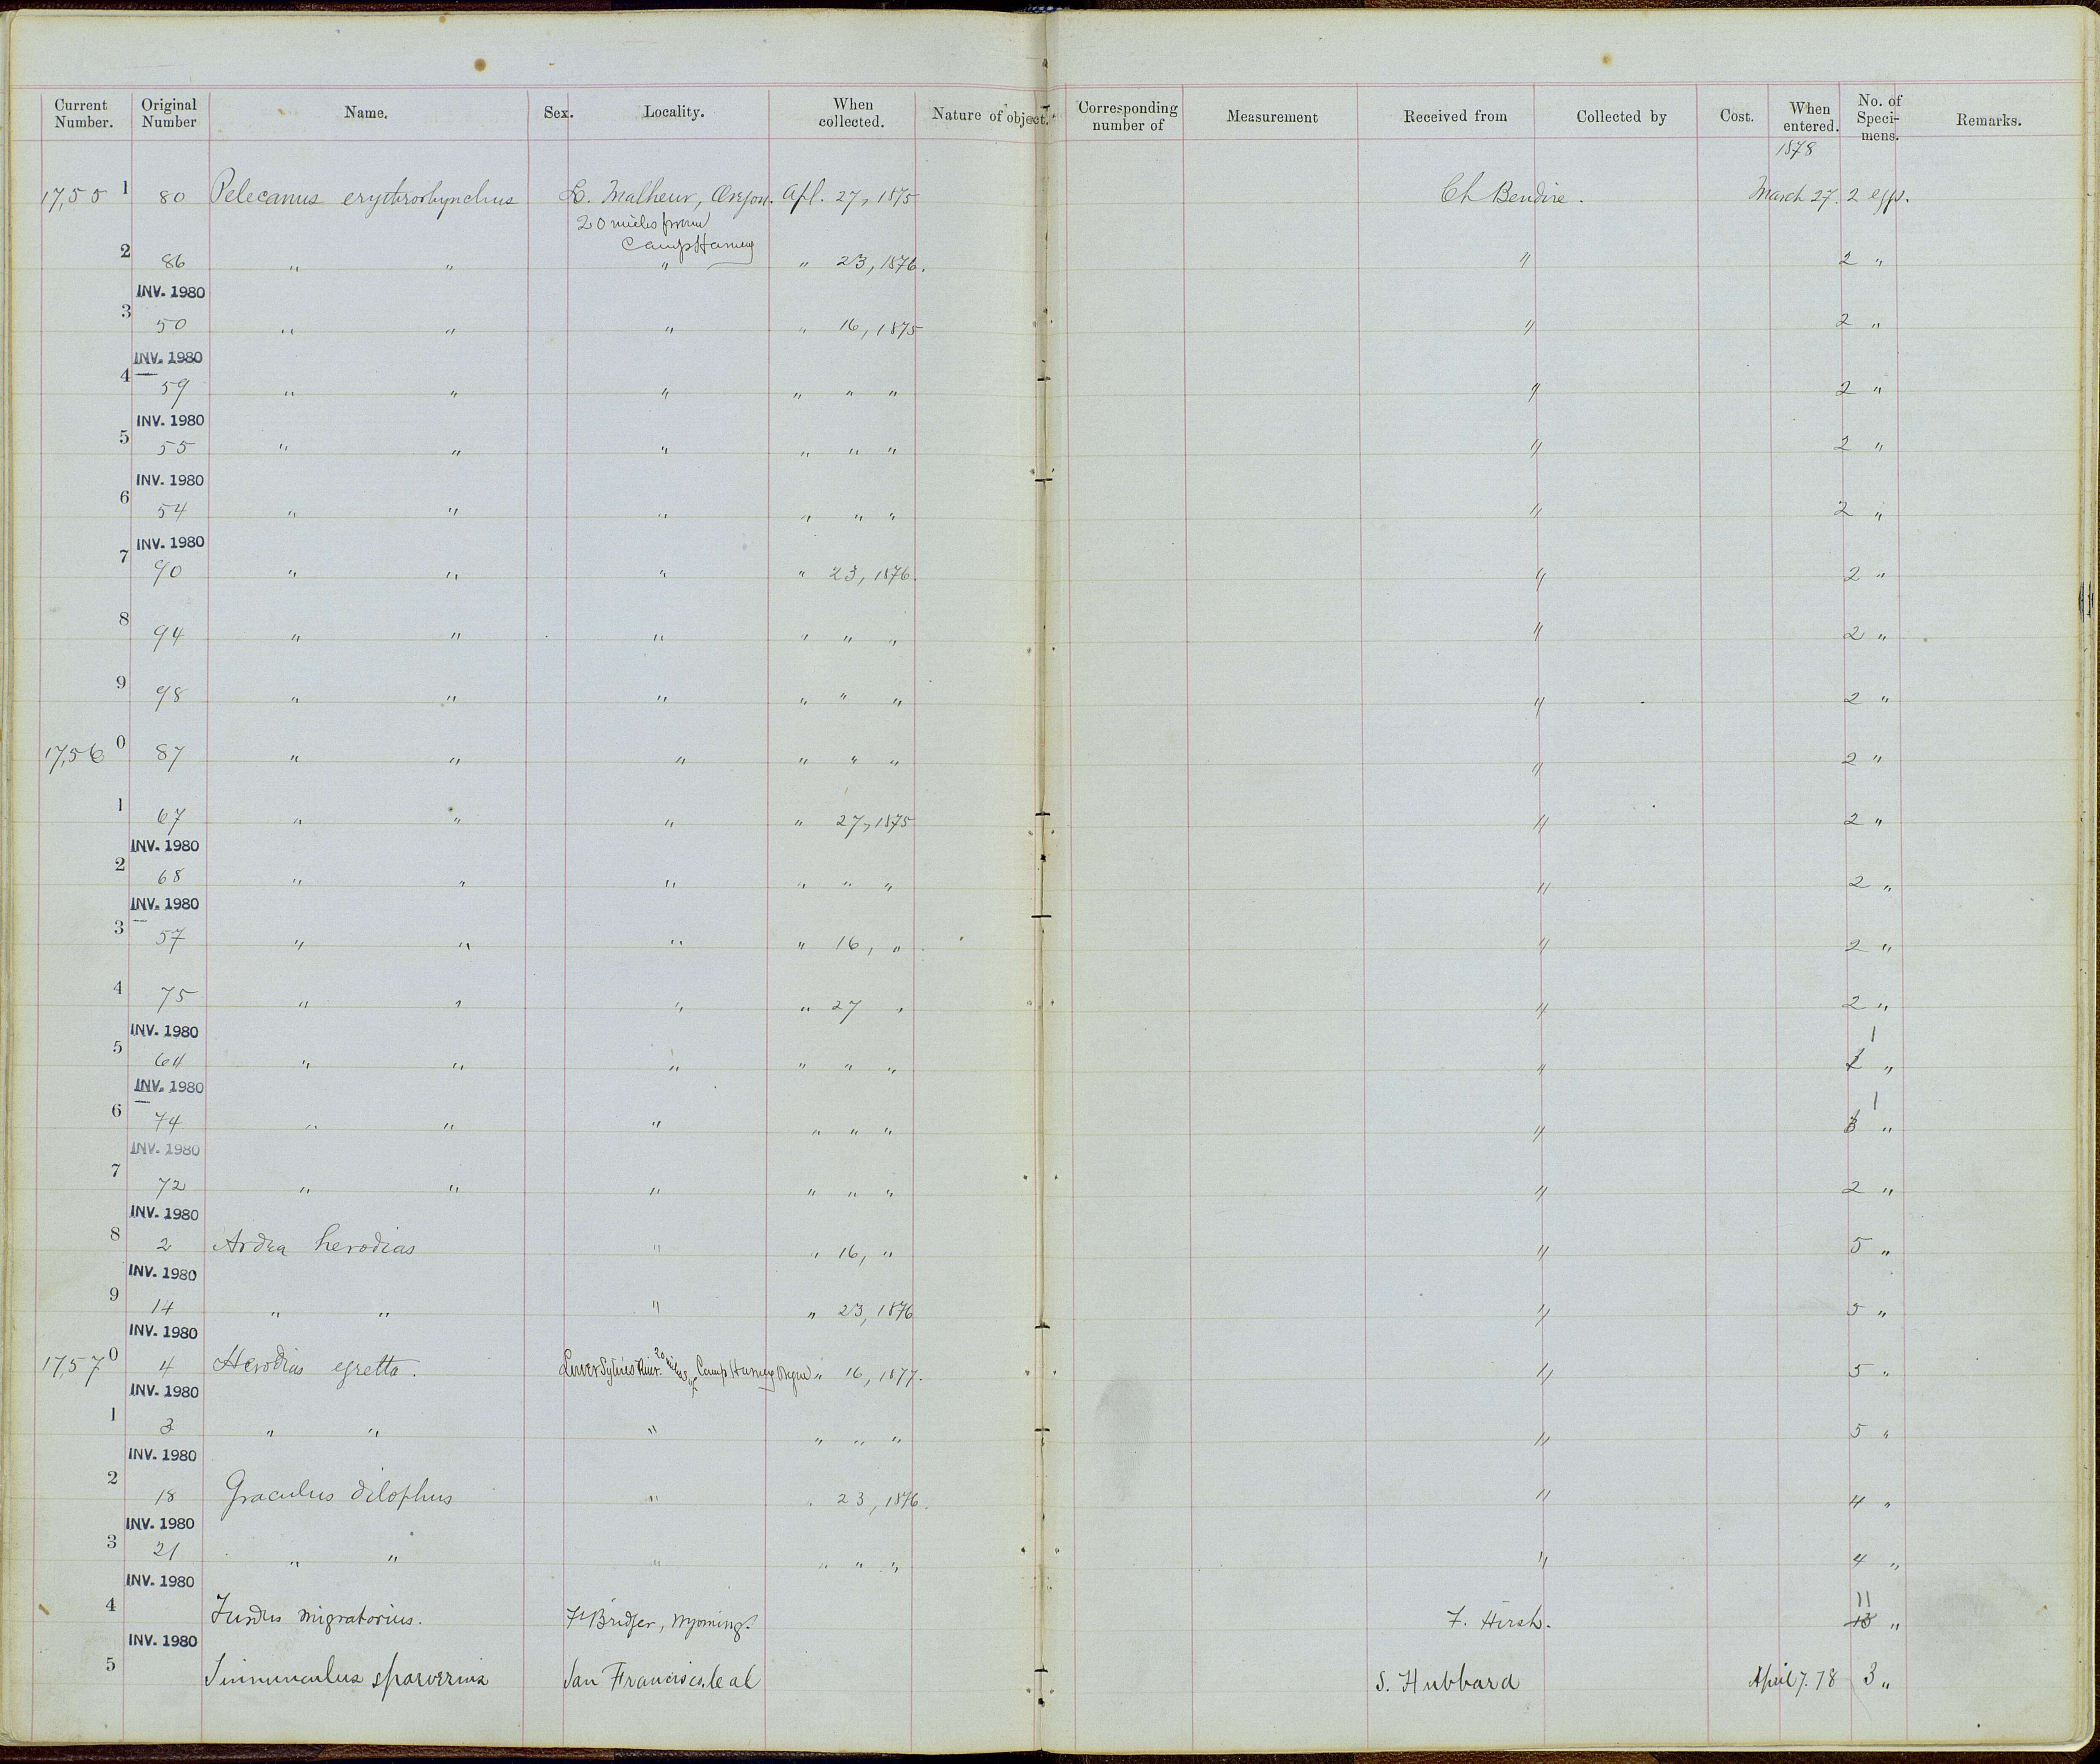 Current Number. Original Number Name. Sex. Locality. When collected. Nature of object. Corresponding number of Measurement Received from Collected by Cost. When entered. No. of Specimens. Remarks.
1878
17,55 1 80 Pelecanus erythrorhynchus L. Malheur, Oregon. Apl. 27, 1875 Ch Bendire. March 27. 2 egg.
20 miles from
Camp Harney
2 86 " " " " 23, 1876. " 2 "
INV. 1980
3 50 " " " " 16, 1875 " 2 "
INV. 1980
4 59 " " " " " " " 2 "
INV. 1980
5 55 " " " " " " " 2 "
INV. 1980
6 54 " " " " " " " 2 "
INV. 1980
7 90 " " " " 23, 1876. " 2 "
8 94 " " " " " " " 2 "
9 98 " " " " " " " 2 "
17,56 0 87 " " " " " " " 2 "
1 67 " " " " 27, 1875 " 2 "
INV. 1980
2 68 " " " " " " " 2 "
INV. 1980
3 57 " " " " 16, " " 2 "
4 75 " " " " 27 " " 2 "
INV. 1980
5 64 " " " " " " " 1 "
INV. 1980
6 74 " " " " " " " 1 "
INV. 1980
7 72 " " " " " " " 2 "
INV. 1980
8 2 Ardea herodias " " 16, " " 5 "
INV. 1980
9 14 " " " " 23, 1876 " 5 "
INV. 1980
17,57 0 4 Herodias egretta. Lower Sylvies River. 20 miles of Camp Harney Oregon " 16, 1877. " 5 "
INV. 1980
1 3 " " " " " " " 5 "
INV. 1980
2 18 Graculus dilophus " " 23, 1876. " 4 "
INV. 1980
3 21 " " " " " " " 4 "
INV. 1980
4 Turdus migratorius. Ft Bridger, Wyoming. F. Hirsh. 11 13 "
INV. 1980
5 Tinnunculus sparverius San Francisco, Cal S. Hubbard April 7. 78 3 "